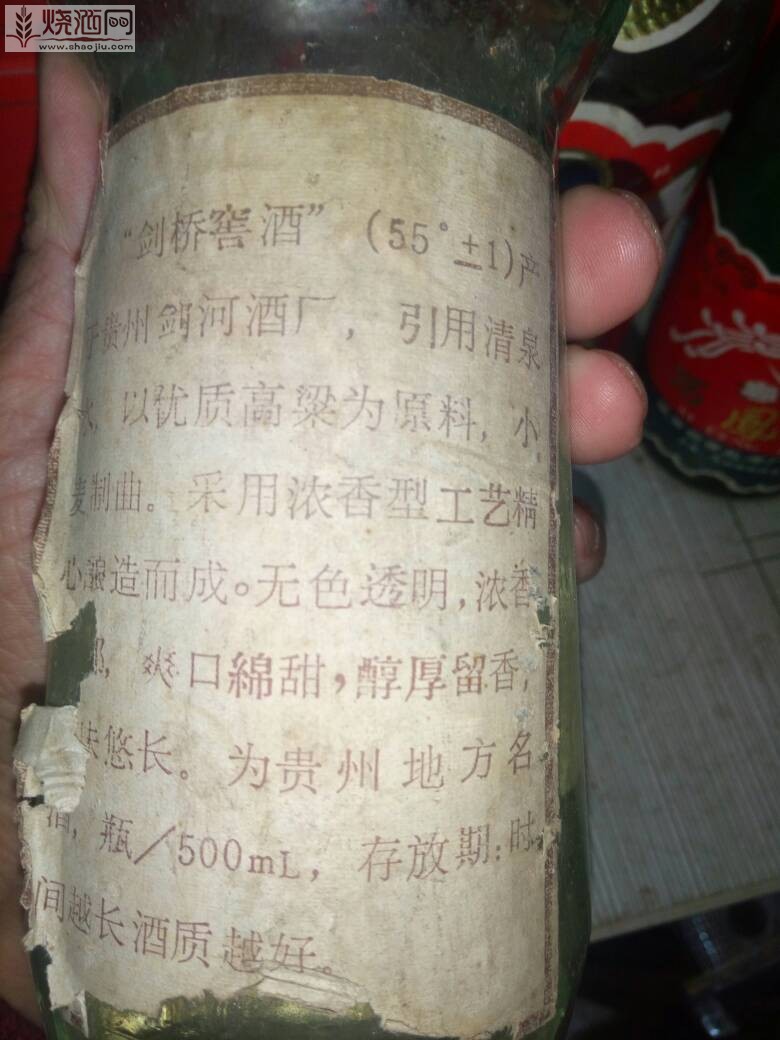 烧酒网
www.shaojiu.com
“剑桥窖酒” (55°±1)产
于贵州剑河酒厂, 引用清泉
水, 以优质高粱为原料, 小
麦制曲。采用浓香型工艺精
心酿造而成。无色透明, 浓香
郁, 爽口綿甜, 醇厚留香,
味悠长。为贵州地方名
酒, 瓶/500mL, 存放期: 时
间越长酒质越好。